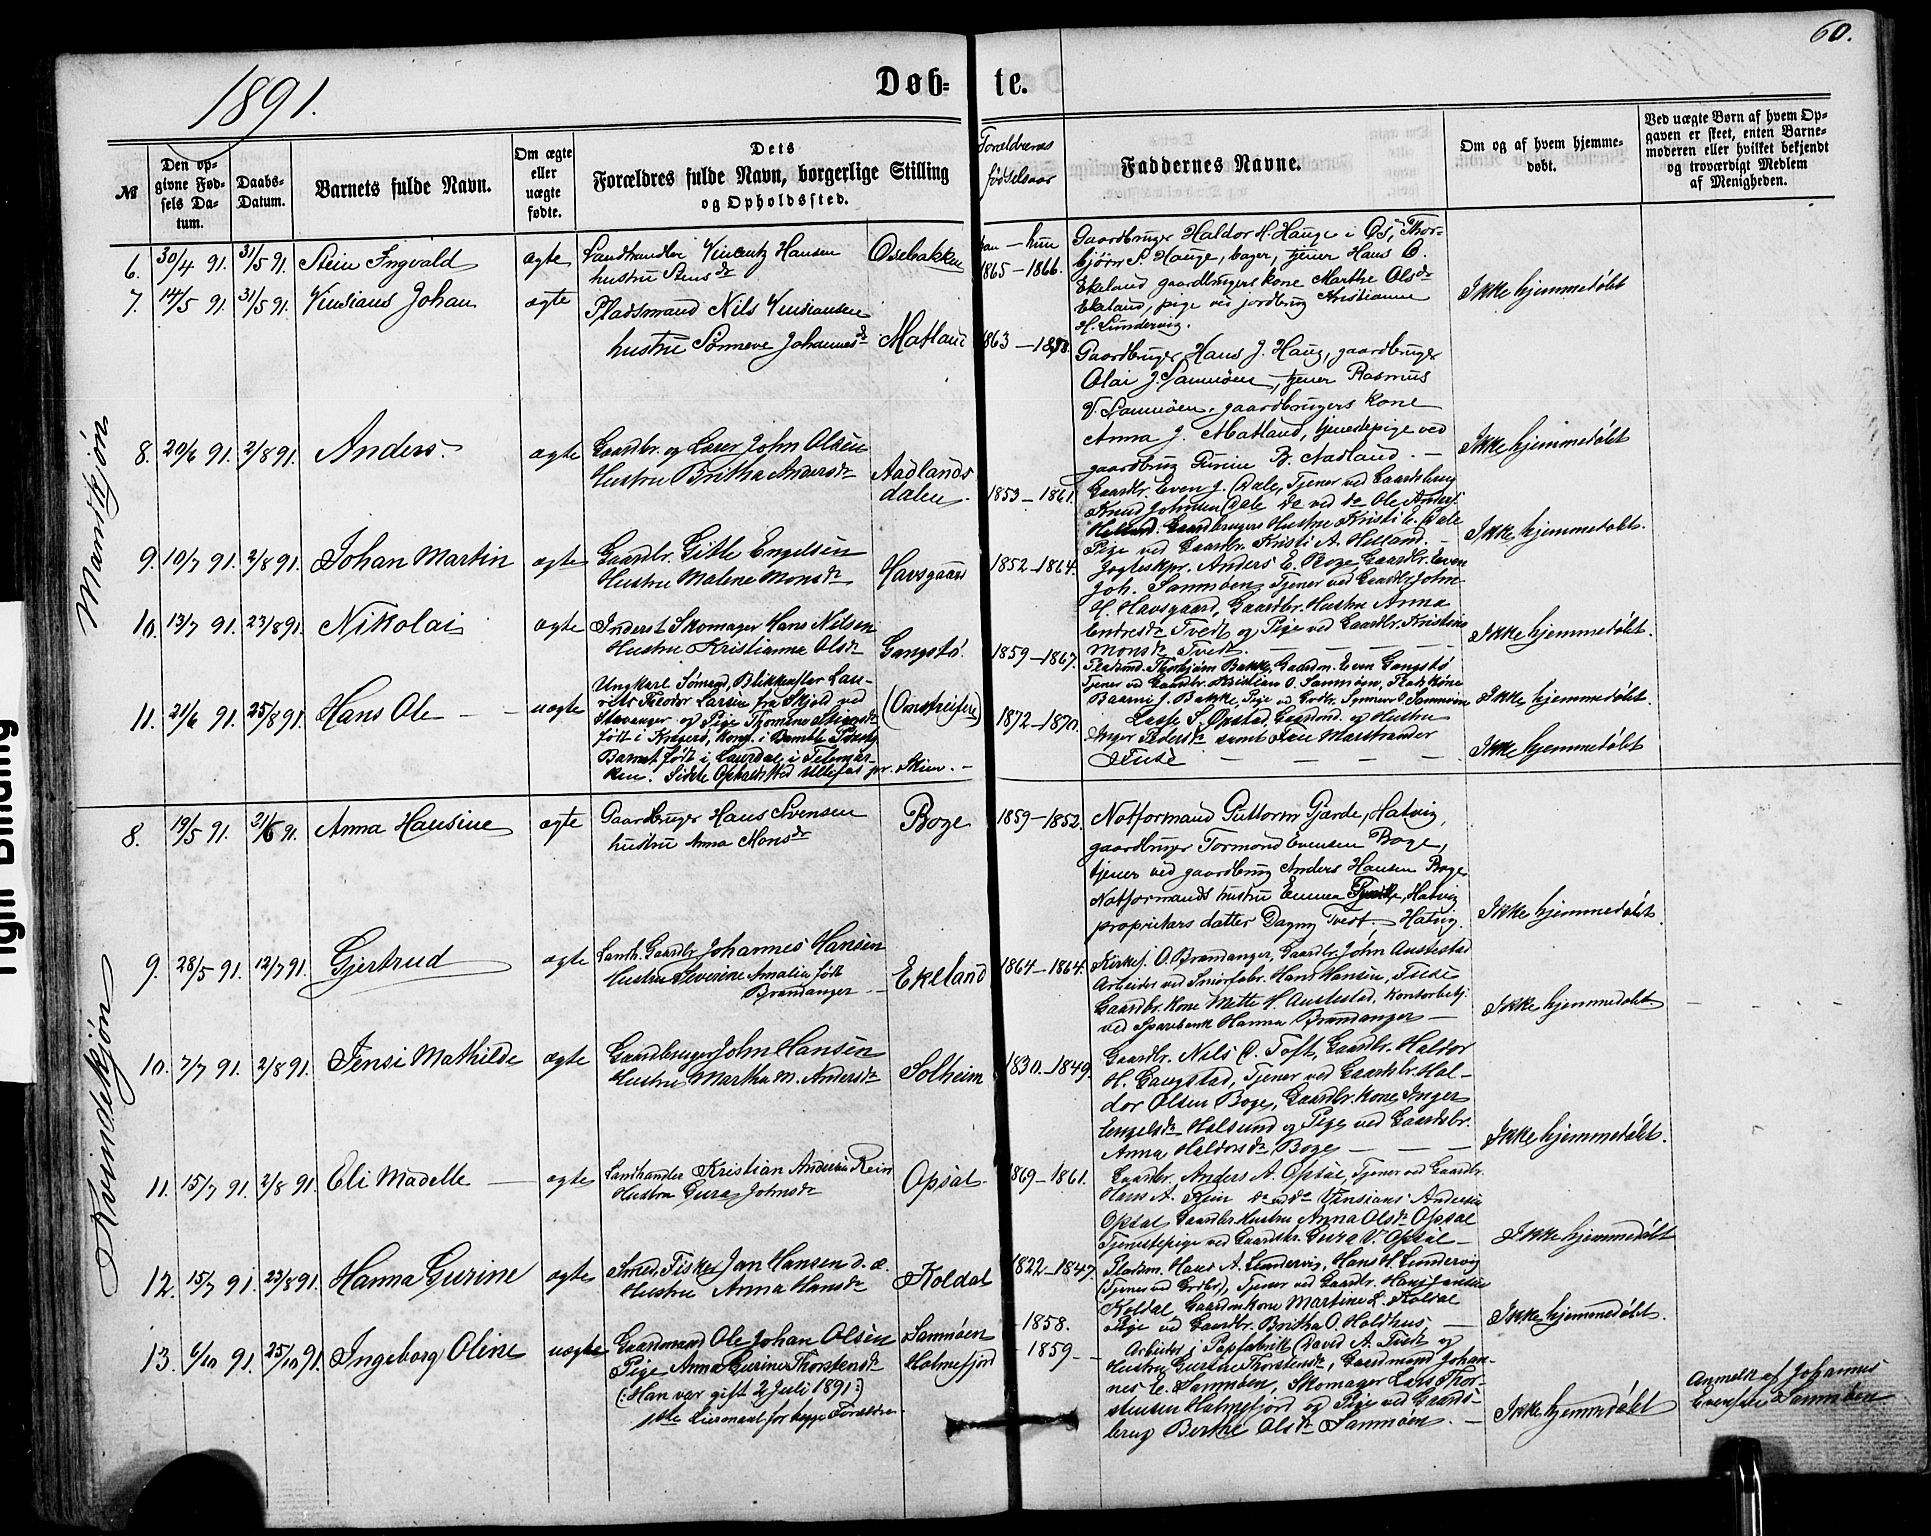 60.
1891.
Døb- te.
№
Den opgivne Fødsels Datum.
Daabs-Datum.
Barnets fulde Navn.
Om ægte eller uægte fødte.
Dets Forældres fulde Navn, borgerlige Stilling og Opholdssted.
Forældrenes fødselsaar
Faddernes Navne.
Om og af hvem hjemmedøbt.
Ved uægte Børn af hvem Opgaven er skeet, enten Barnemoderen eller hvilket bekjendt og troværdigt Medlem af Menigheden.
Mandkjøn
6. 30/4 91. 31/5 91. Stein Ingvald ægte Landhandler Vincentz Hansen
hustru Osebakken
1865 – 1866.
Gaardbruger Haldor H. Hauge i Os, Thor-
bjørn S. Hauge, bager, tjener Hans O.
Ekeland gaardbrugers kone Marthe Olsdr
Ekeland, pige ved jordbrug Kristianne
H. Sundervig.
Ikke hjemmedøbt
7. 14/5 91. 31/5 91. Vinsians Johan ægte Pladsmand Nils Vinsiansen
hustru Sønneve Johannesdr Matland
1863 – 1858.
Gaardbruger Hans J. Haug, gaardbruger
Olai J. Samnøen, tjener Rasmus
V. Samnøen, gaardbrugers kone
Anna J. Matland, tjenestepige ved
gaardbrug Gurine B. Aadland. –
Ikke hjemmedøbt
8. 20/6 91. 2/8 91. Anders. ægte Gaardbr. og Lærer John Olsen
Hustru Britha Andersdr Aadlands
dalen.
1853 – 1861.
Gaardbr. Even J. Dale, Tjener ved Gaardsbrug
Knud Johnsen Dale do ved do Ole Anders.
Helland. Gaardbrugers Hustru Kristi E. Dale
Pige ved Gaardbr. Kristi A. Helland. –
Ikke hjemmedøbt.
9. 10/7 91. 2/8 91. Johan Martin ægte Gaardbr. Gitle Engelsen
Hustru Malene Monsdr Havsgaard
1852 – 1864.
Jagteskpr. Anders E. Boge, Gaardbr. Even
Joh. Samnøen, Tjener ved Gaardbr. John
H. Havsgaard, Gaardbr. Hustru Anna
Endresdr Tvedt og Pige ved Gaardbr. Kristine
Monsdr Tvedt. – – –
Ikke hjemmedøbt.
10. 13/7 91. 23/8 91. Nikolai ægte Inderst Skomager Hans Nilsen
Hustru Kristianna Olsdr Gangstø.
1859 – 1867.
Pladsmd. Thorbjørn Bakke, Gaardm. Even Gangstø
Tjener ved Gaardbr. Kristian O. Samnøen, Pladskone
J. Bakke, Pige ved Samnøen
Ikke hjemmedøbt.
11. 21/6 91. 25/8 91. Hans Ole – – uægte Ungkarl Sømand, Blikkenslar Lau-
rits Teodor Larsen fra Skjold ved
Stavanger og Pige Thomine
født i Kragerø, konf. i Bamble
Barnet født i Laurdal i Telemar-
ken. Sidste Opholdssted Ullefos pr. Skien. –
(Omstreifere)
1872 – 1870.
Lasse S. Opstad, og Hustru
Inger Pedersdr samt Marstrander
Fuse – – – –
Ikke hjemmedøbt
Kvindekjøn
8. 19/5 91. 21/6 91. Anna Hansine ægte Gaardbruger Hans Svensen
hustru Anna Monsdr Boge
1859 – 1852.
Notformand Guttorm Gjerde, Hatvig,
gaardbruger Tormond Evensen Boge,
tjener ved gaardbrug Anders Hansen Boge
Notformands hustru Emma Hatvig
proprietærs datter Dagny Tvedt, Hatvig.
Ikke hjemmedøbt
9. 28/5 91. 12/7 91. Gjertrud ægte Landh. Gaardbr. Johannes Hansen
Hustru Severine Amalia født
Brandanger – Ekeland
1864 – 1864.
Kirkes. O. Brandanger, Gaardbr. John Austestad
Arbeider ved Smørfabr. Hans Hansen, Fuse
Gaardbr. kone Mette H. Austestad, Kontorbetj.
ved Sparebank Hanna Brandanger –
Ikke hjemmedøbt. – – –
10. 7/7 91. 2/8 91. Jensi Mathilde ægte Gaardbruger John Hansen
Hustru Martha M. Andersdr Solheim
1830 – 1849.
Gaardbr. Nils O. Toft, Gaardbr. Haldor
H. Gaugstad, Tjener ved Gaardsbr. Hal-
dor Olsen Boge, Gaardbr. kone Inger
Engelsdr Holsund og Pige ved Gaardsbr.
Anna Haldorsdr Boge – – –
Ikke hjemmedøbt.
11. 15/7 91. 2/8 91. Eli Madelle – ægte Landhandler Kristian Andersen Rein
Hustru Gura Johnsdr Opsal
1869 – 1861.
Gaardbr. Anders A. Opsal, Tjener ved Gaardbr.
Hans A. Rein do ved do Vinsians Andersen
Opsal, Gaardbr. Hustru Anna Olsdr Opsal
Tjenestepige ved Gaardbr. Gura V. Opsal –
Ikke hjemmedøbt
12. 15/7 91. 23/8 91. Hanna Gurine ægte Smed, Fisker Jan Hansen d. æ.
Hustru Anna Hansdr Koldal
1822 – 1847.
Pladsm. Hans A. Sundervig, Hans H. Sundervig
(Tjener ved Grdbr.), Tjener ved Gaardbr. Hans Jansen
Koldal Gaardm. kone Martine L. Koldal
Pige ved Gaardbr. Britha O. Holdhus, –
Ikke hjemmedøbt.
13. 6/10 91. 25/10 91. Ingeborg Oline uægte Gaardmand Ole Johan Olsen
Pige Anna Gurine Thorstensdr
(: Han var gift 2 Juli 1891 :)
1ste Leiermaal for begge Forældre.
Samnøen
Holmefjord
– 1858.
– 1859 –
Arbeider i Papfabrik David A. Fuse og
Hustru Gurine Thorstensdr, Gaardmand Johan-
nes E. Samnøen, Skomager Lars Thor-
stensen Holmefjord og Pige ved Gaards-
brug Berthe Olsdr Samnøen. –
Ikke hjemmedøbt
Anmeldt af Johannes
Evensen Samnøen